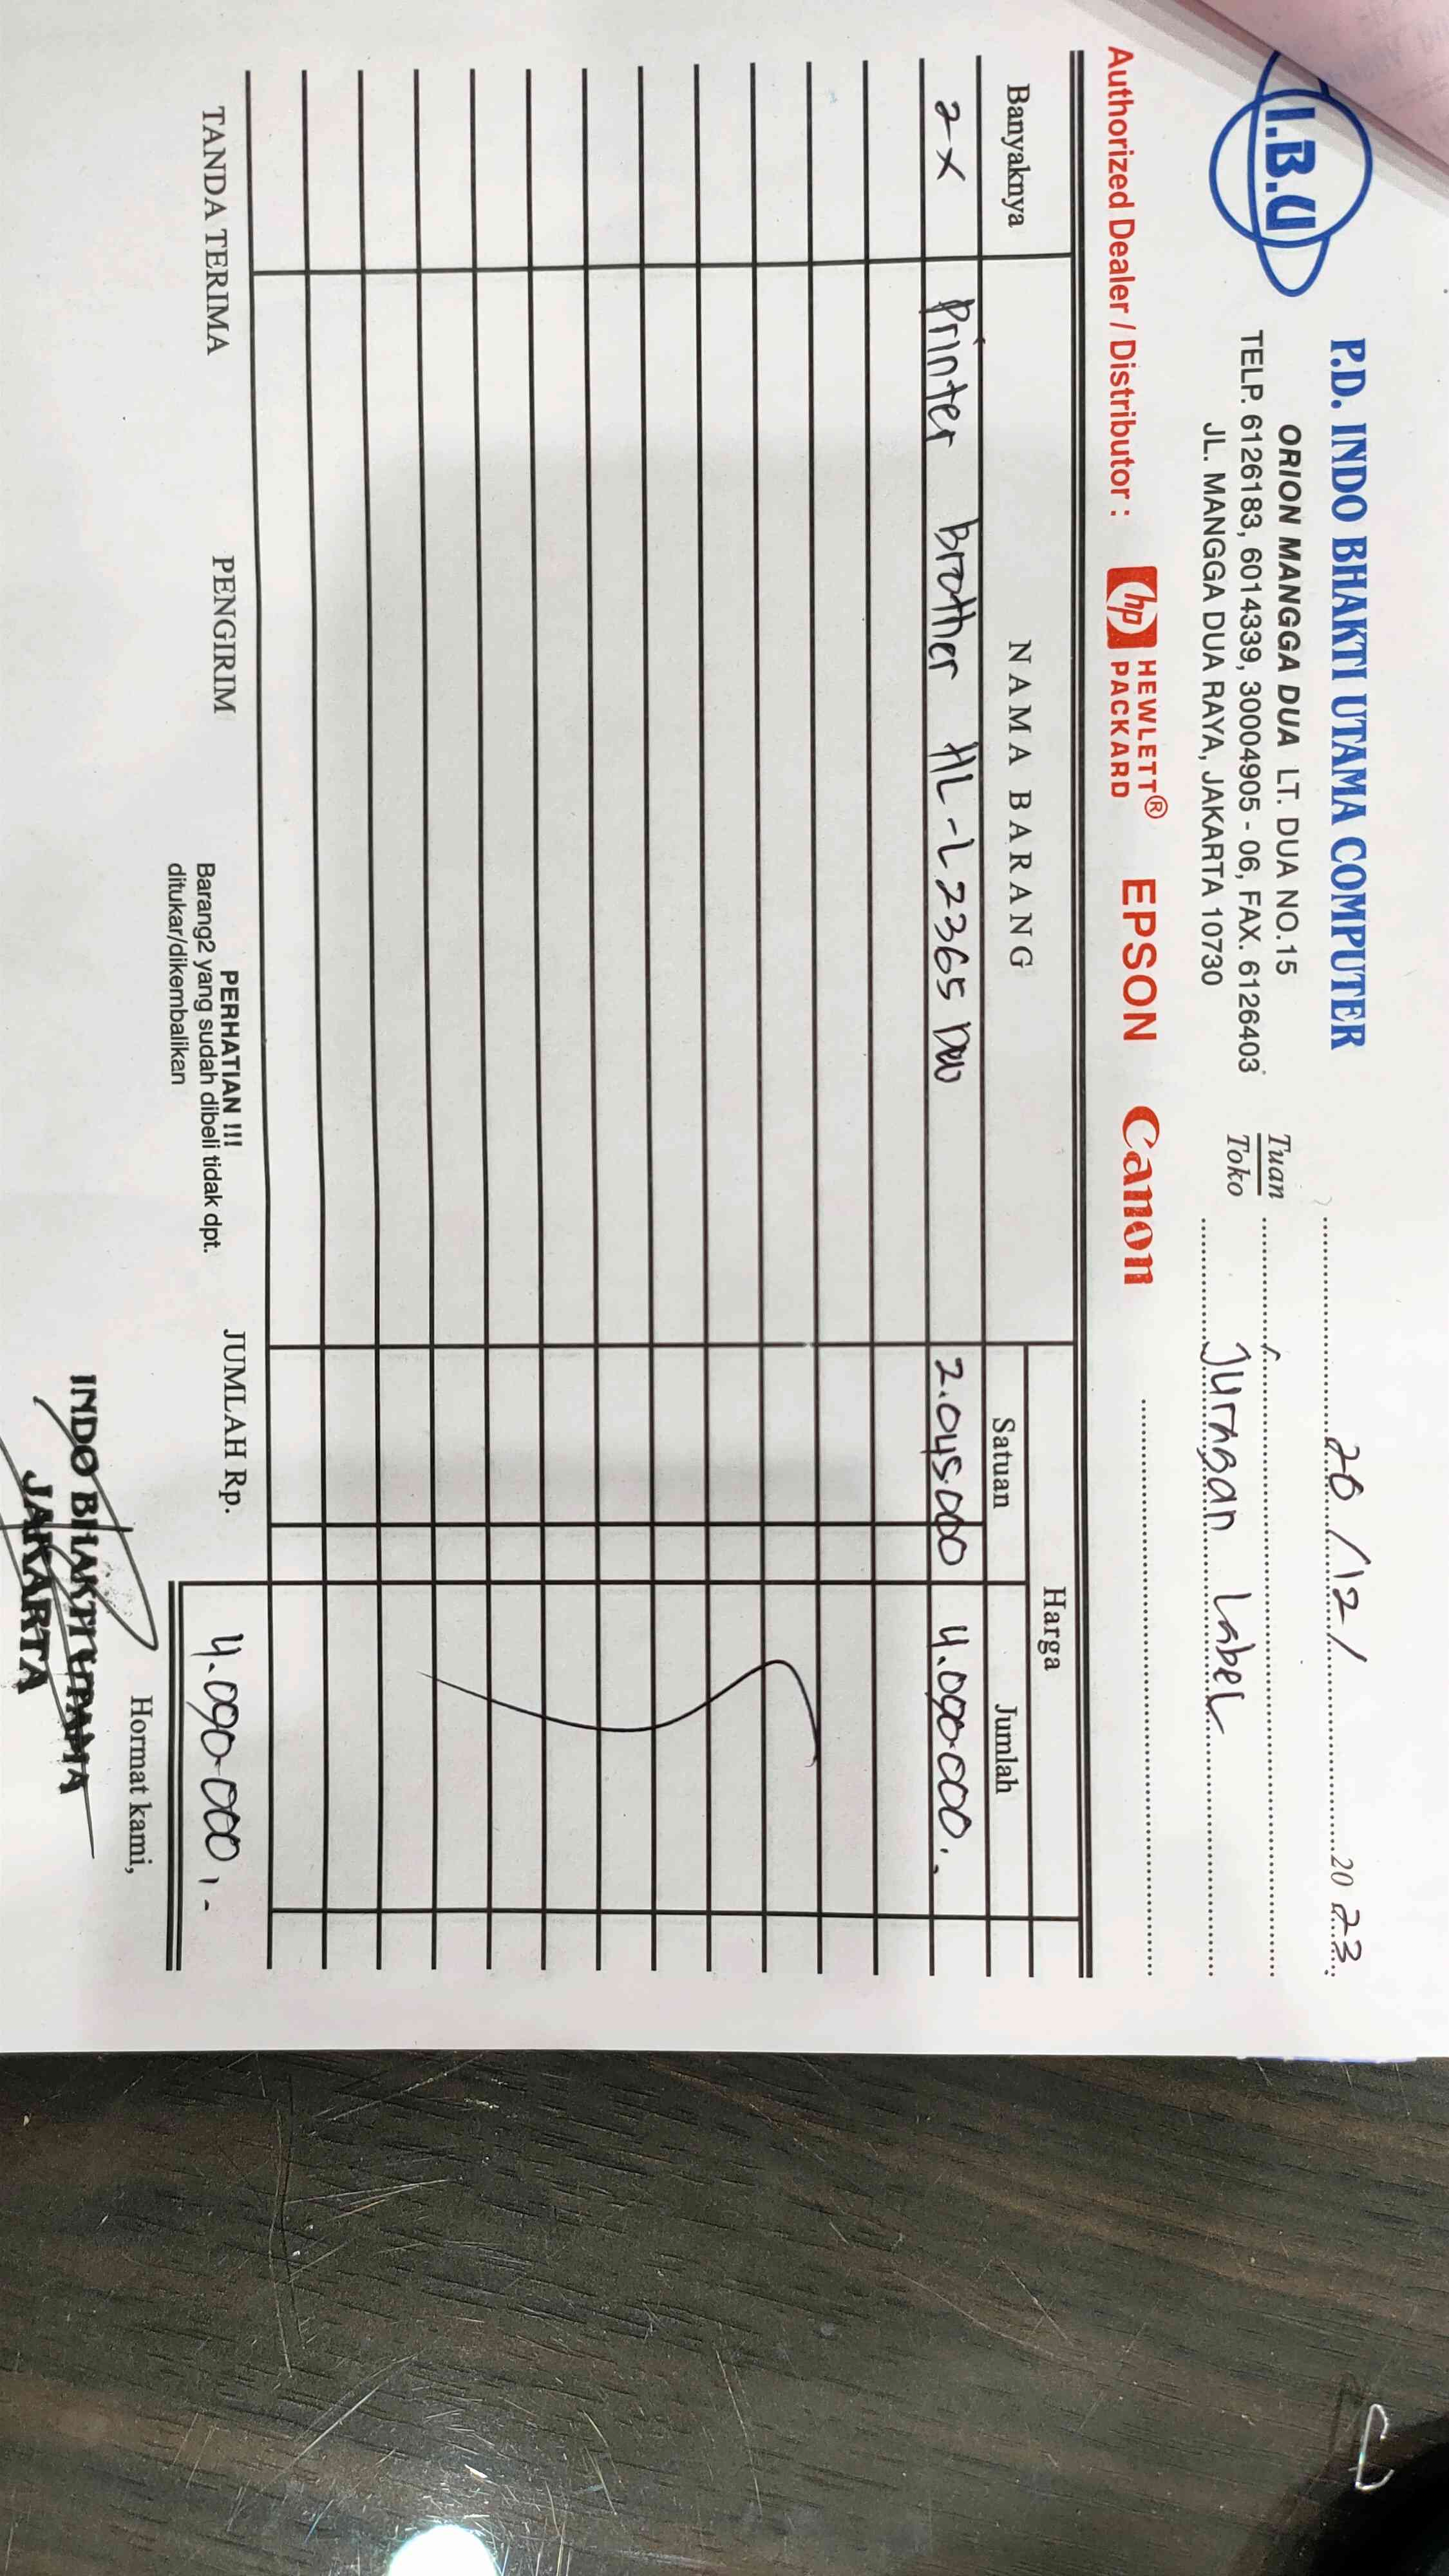 I.B.U
P.D. INDO BHAKTI UTAMA COMPUTER
ORION MANGGA DUA LT. DUA NO.15
TELP. 6126183, 6014339, 30004905 - 06, FAX. 6126403
JL. MANGGA DUA RAYA, JAKARTA 10730
20/12/ 2023
Tuan
Toko Juragan Label
Authorized Dealer / Distributor : hp HEWLETT® PACKARD EPSON Canon
Banyaknya NAMA BARANG Harga
Satuan Jumlah
2x Printer Brother HL-L2365 DW 2.045.000 4.090.000.-
TANDA TERIMA PENGIRIM JUMLAH Rp. 4.090.000,-
PERHATIAN !!!
Barang2 yang sudah dibeli tidak dpt.
ditukar/dikembalikan
Hormat kami,
INDO BHAKTI UTAMA
JAKARTA